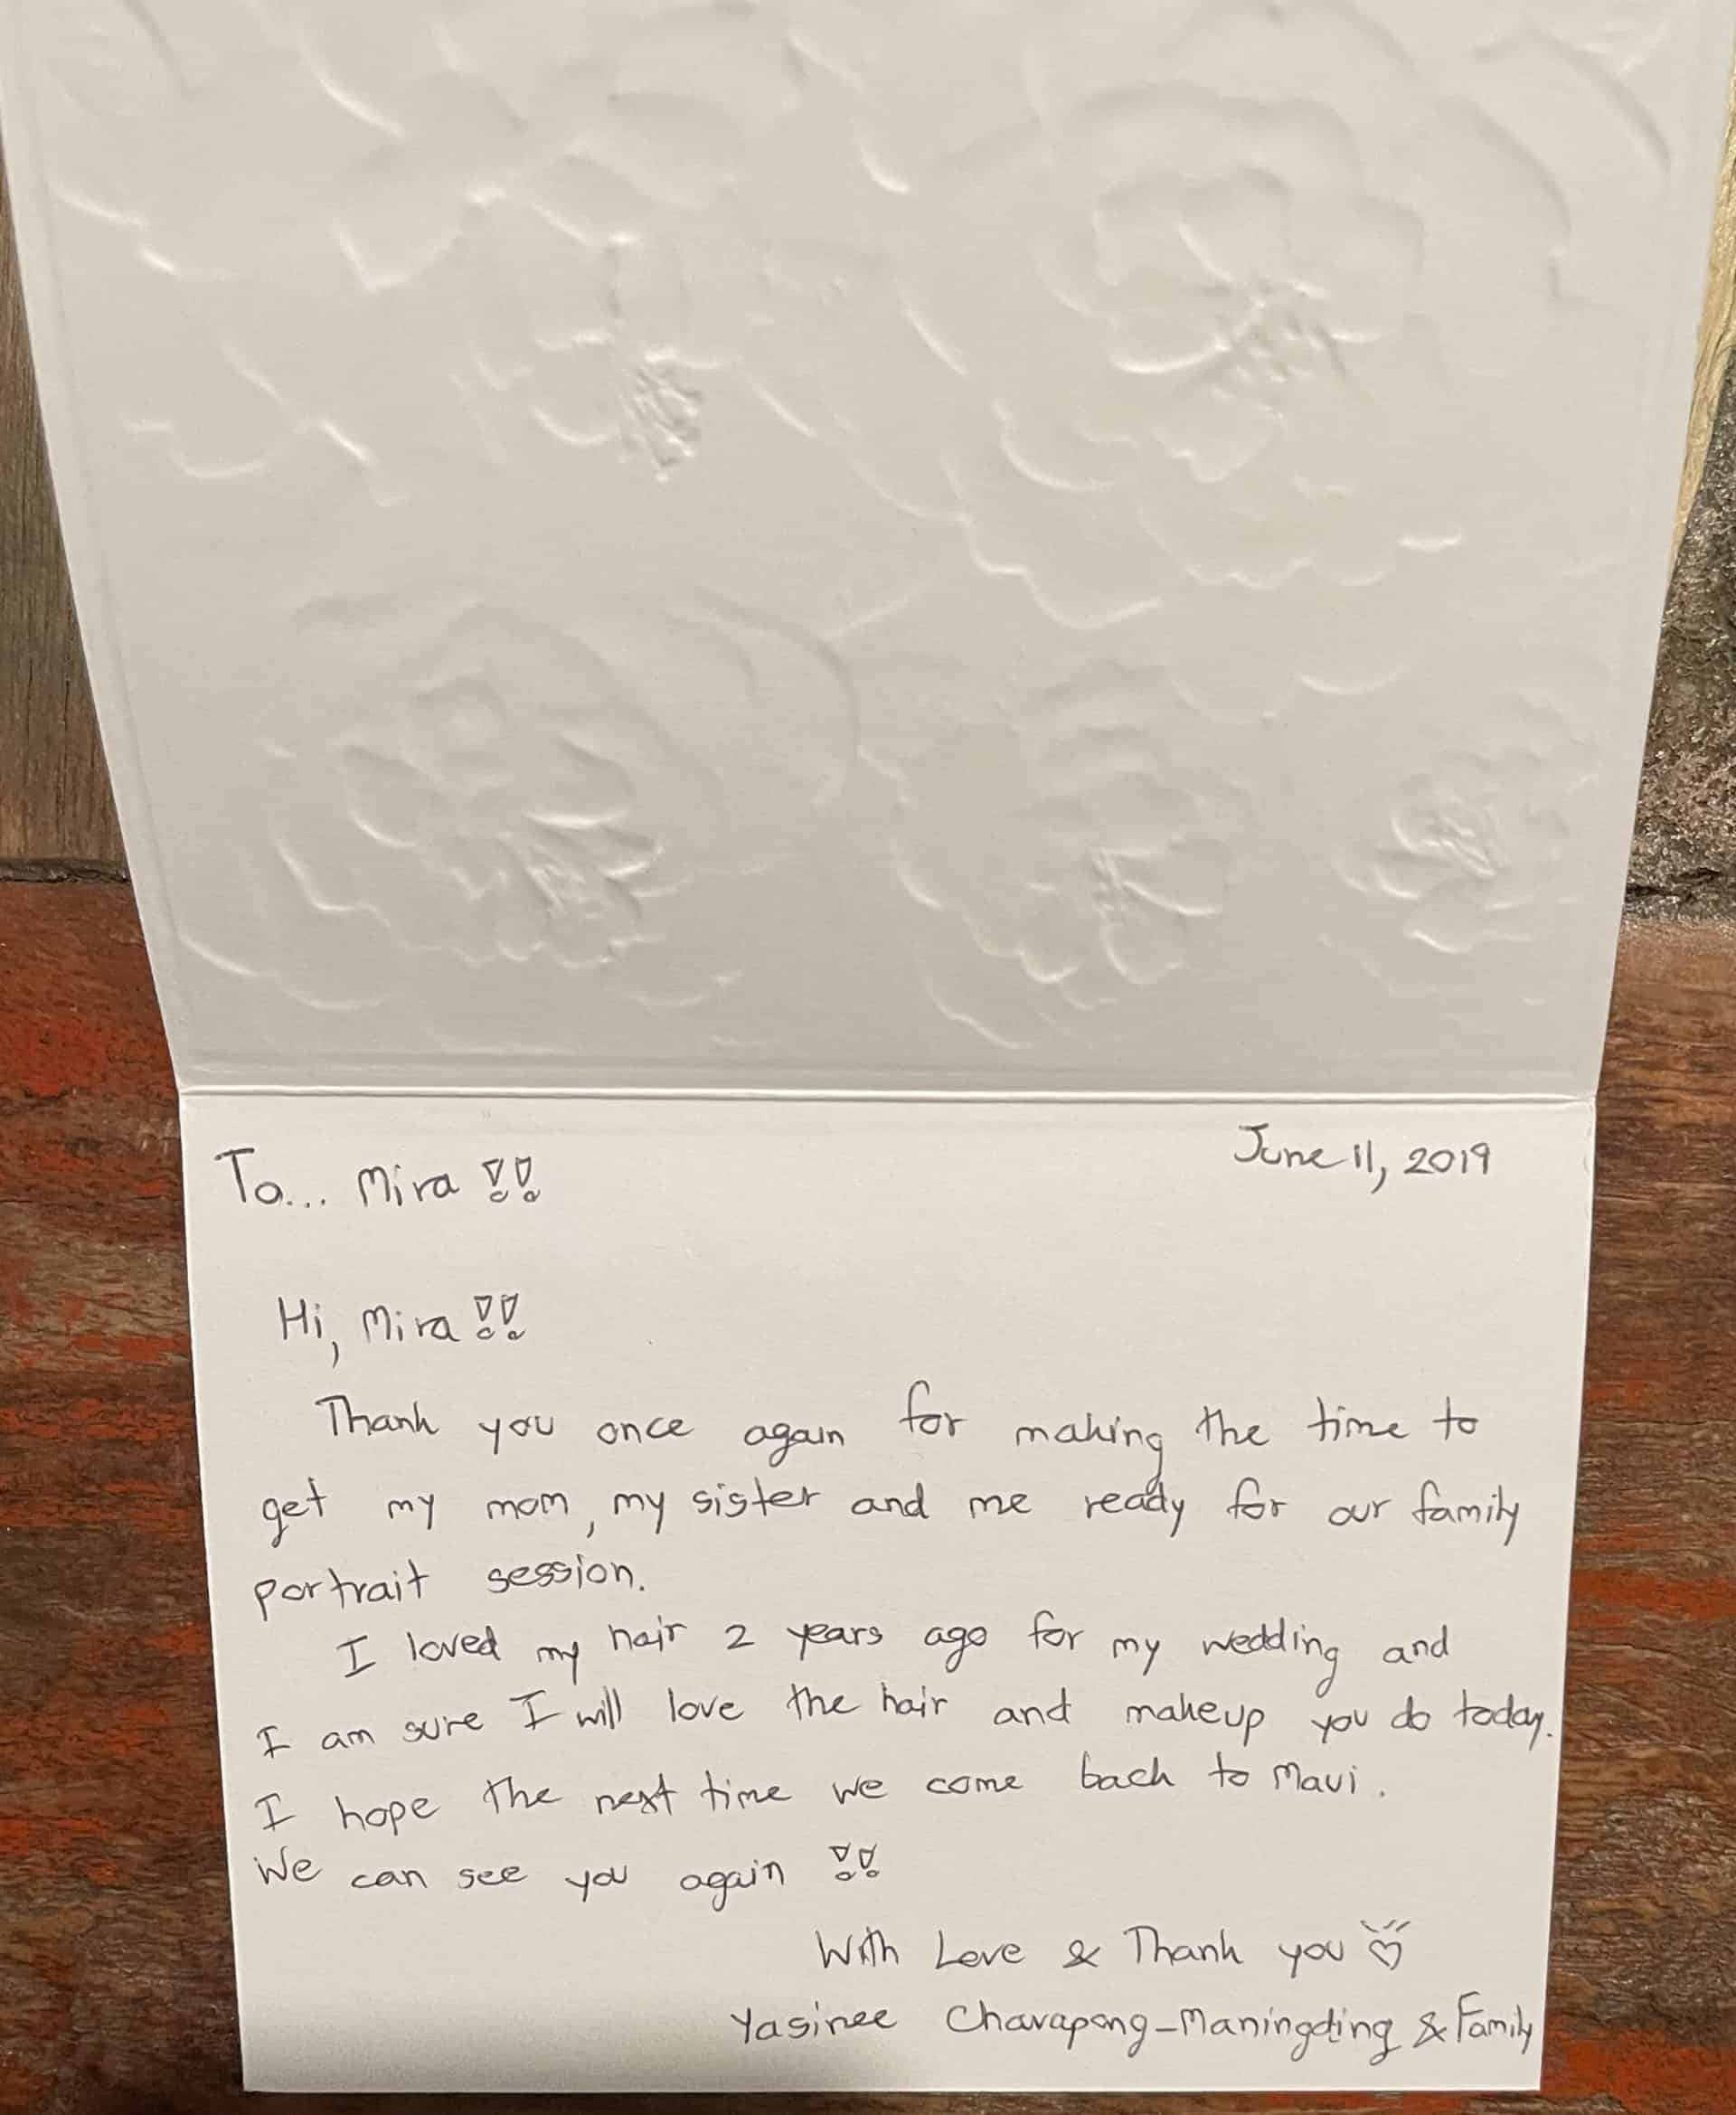 June 11, 2019
To... Mira !!
Hi, Mira !!
Thank you once again for making the time to
get my mom, my sister and me ready for our family
portrait session.
I loved my hair 2 years ago for my wedding and
I am sure I will love the hair and makeup you do today.
I hope the next time we come back to Maui.
We can see you again !!
With Love & Thank you ♡
Yasinee Chavapong-Maningding & Family